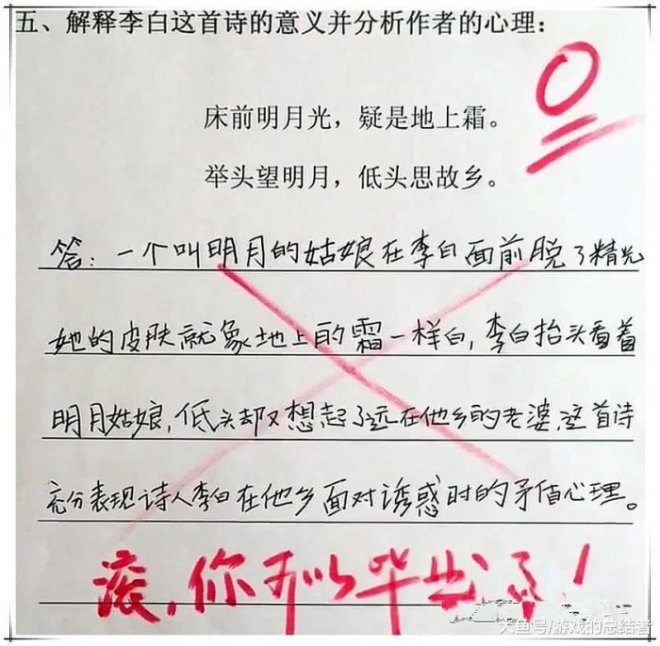 五、解释李白这首诗的意义并分析作者的心理：
床前明月光，疑是地上霜。
举头望明月，低头思故乡。
答：一个叫明月的姑娘在李白面前脱了精光
她的皮肤就象地上的霜一样白，李白抬头看着
明月姑娘，低头却又想起了远在他乡的老婆，这首诗
充分表现诗人李白在他乡面对诱惑时的矛盾心理。
滚，你可以毕业了！
大鱼号/游戏的总结者